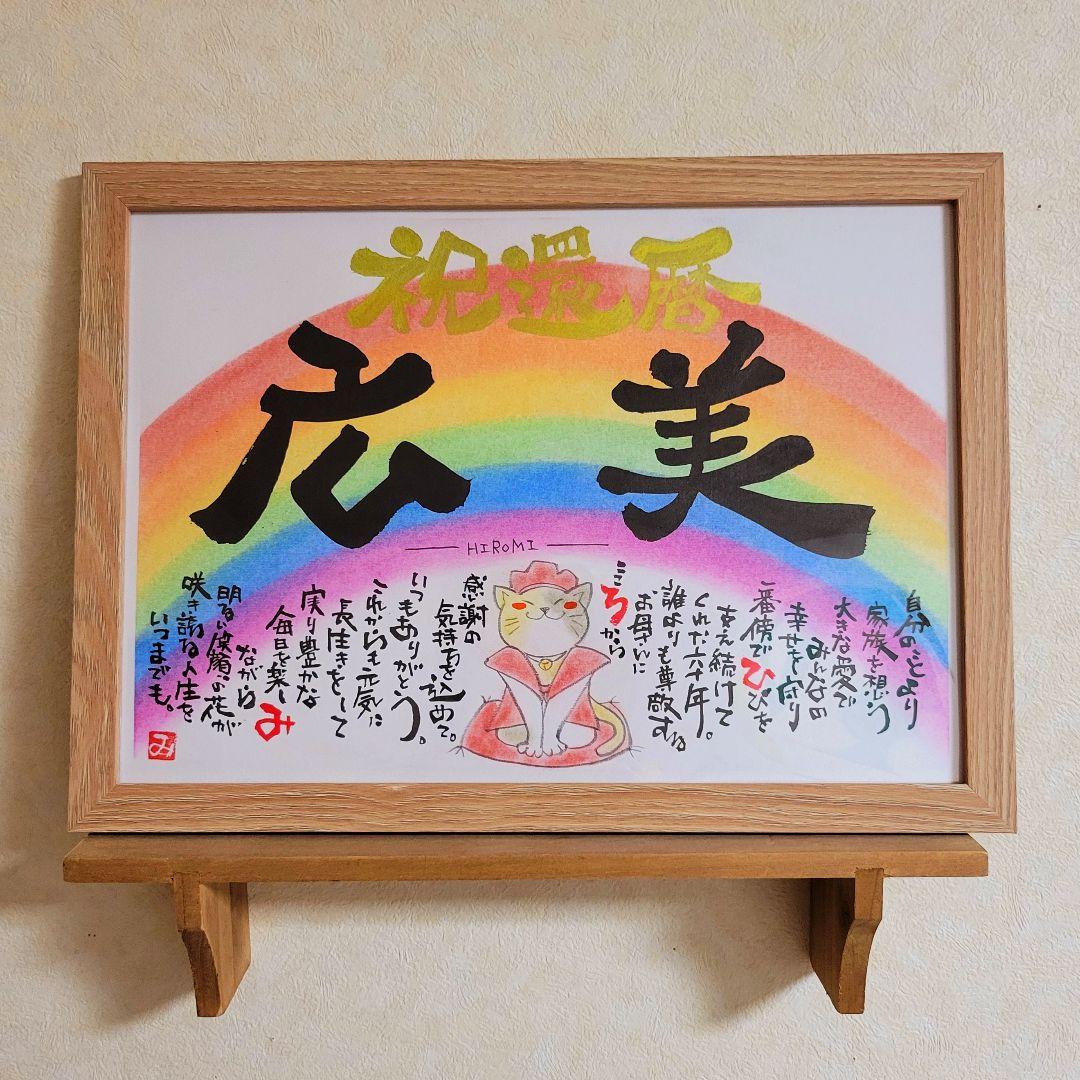 祝還暦
広美
HIROMI
自分のことより
家族を想う
大きな愛で
みんなの
幸せを守り
一番傍でひびを
支え続けて
くれた六十年。
誰よりも尊敬する
お母さんに
こころから
感謝の
気持ちを込めて。
いつもありがとう。
これからも元気に
長生きをして
実り豊かな
毎日を楽しみ
ながら
明るい笑顔の花が
咲き誇る人生を
いつまでも。
み